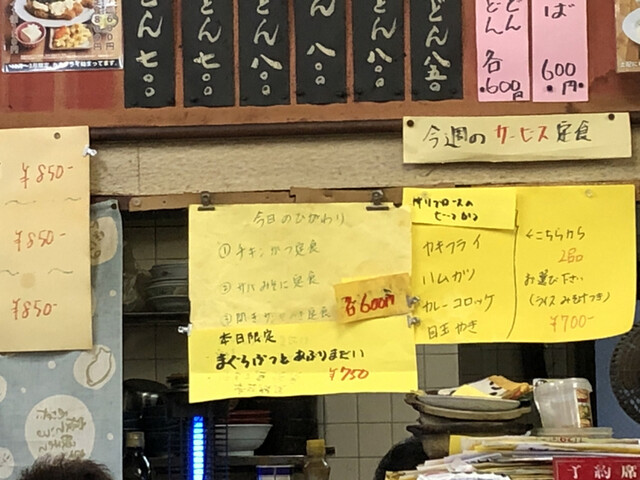 どん 七〇〇
どん 七〇〇
どん 八〇〇
ん 八〇〇
どん 八〇〇
どん 八五〇
どん
どん
各
600円
ば
600円
今週の サービス 定食
¥850-
¥850-
¥850-
今日のひがわり
① チキンかつ定食
② サバみそに定食
③ 開き
定食
各600円
本日限定
まぐろぶつとあぶりまだい
¥750
カキフライ
ハムカツ
カレーコロッケ
目玉やき
←こちらから
2品
お選び下さい
(ライス みそ汁つき)
¥700-
予約席